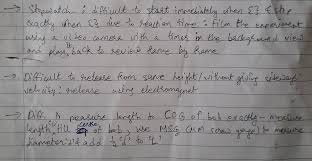 → Stopwatch : difficult to start immediately when & stop
exactly when due to reaction time : film the experiment
using a video camera with a timer in the background view
and play back to review frame by frame
→ Difficult to release from same height / without giving sideways
velocity : release using electromagnet
→ Diff. to measure length to COG of bob exactly - measure
length till centre of bob, use MSG (use screw gauge) to measure
diameter & add ½ 'd' to 'l'